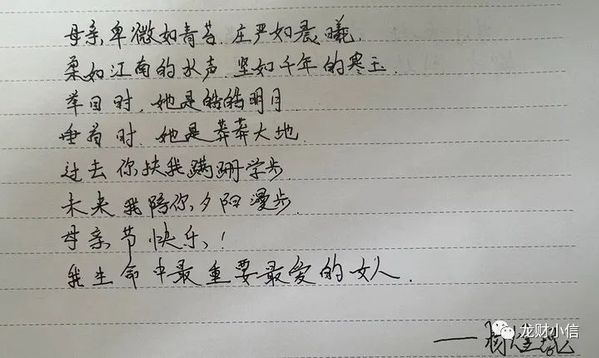 母亲卑微如青苔.庄严如晨曦.
柔如江南的水声.坚如千年的寒玉.
举目时.她是皓皓明月.
垂首时.她是莽莽大地.
过去你扶我蹒跚学步
未来我陪你夕阳漫步.
母亲节快乐!
我生命中最重要最爱的女人.
龙财小信